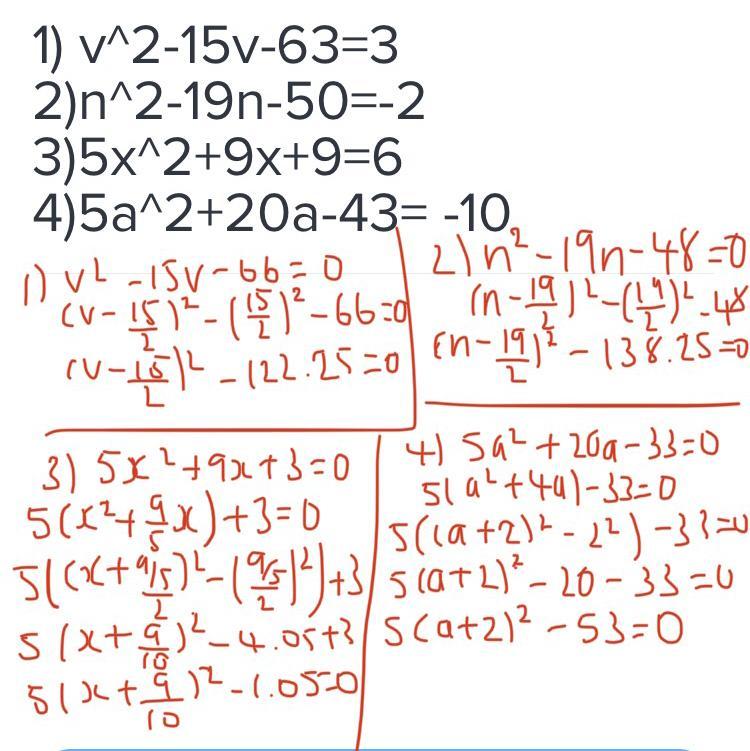 1) v^2-15v-63=3
2)n^2-19n-50=-2
3)5x^2+9x+9=6
4)5a^2+20a-43= -10
1) v² - 15v - 66 = 0
(v - 15/2)² - (15/2)² - 66 = 0
(v - 15/2)² - 122.25 = 0
2) n² - 19n - 48 = 0
(n - 19/2)² - (19/2)² - 48
(n - 19/2)² - 138.25 = 0
3) 5x² + 9x + 3 = 0
5(x² + 9/5 x) + 3 = 0
5((x + 9/5/2)² - (9/5/2)²) + 3
5(x + 9/10)² - 4.05 + 3
5(x + 9/10)² - 1.05 = 0
4) 5a² + 20a - 33 = 0
5(a² + 4a) - 33 = 0
5((a + 2)² - 2²) - 33 = 0
5(a + 2)² - 20 - 33 = 0
5(a + 2)² - 53 = 0